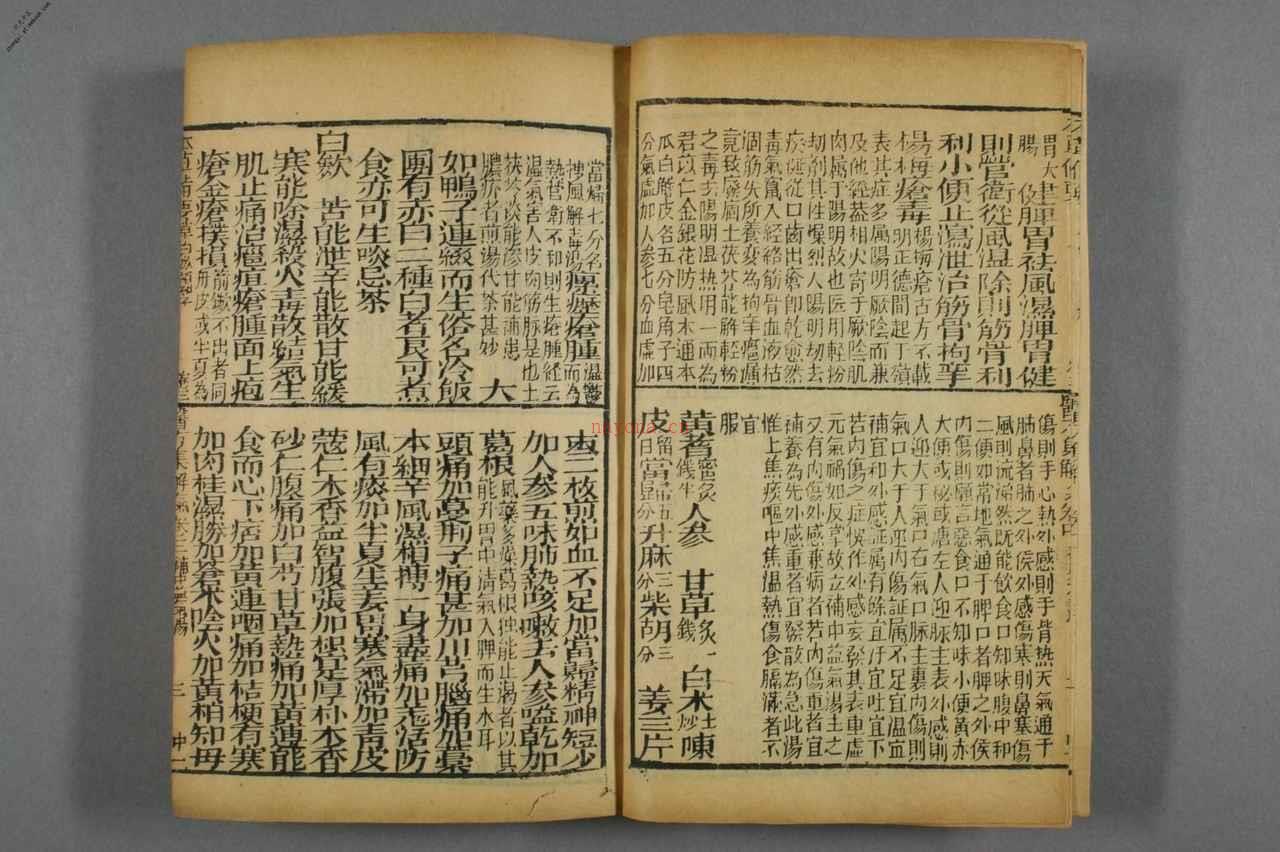 胃大建脾胃祛風濕脾胃健
腸
則營衛從風濕除則筋骨利
利小便止瀉泄治筋骨拘攣
楊梅瘡毒楊梅瘡古方不載
明正德間起于嶺
表其症多属陽明厥陰而兼
及他經盖相火寄于厥陰肌
肉属于陽明故也医用輕粉
刼剂其性燥烈入陽明刼去
痰涎從口齒出瘡即乾愈然
毒氣竄入經絡筋骨血液枯
涸筋失所養変為拘攣癰漏
竟致廢痼土茯苓能解輕粉
之毒主陽明温热用一両為
君苡仁金銀花防風木通木
瓜白鮮皮各五分皂角子四
分氣虚加人参七分血虚加
傷則手心熱外感則手背热天氣通于
肺鼻者肺之外侯外感傷寒則鼻塞傷
風則流涕然既能飲食口知味腹中和
二便如常地氣通于脾口者脾之外侯
内傷則懶言惡食口不知味小便黃赤
大便或秘或溏左人迎脉主表外感則
人迎大于氣口右氣口脉主裏内傷則
氣口大于人迎内傷証属不足宜温宜
補宜和外感証属有餘宜汗宜吐宜下
若内傷之症悮作外感妄發其表重虚
元氣禍如反掌故立補中益氣湯主之
又有内傷外感兼病者若内傷重者宜
補養為先外感重者宜發散為急此湯
惟上焦痰嘔中焦温熱傷食膈滿者不
宜
服
黄蓍蜜炙錢半人参 甘草炙一錢 白术土炒 陳
皮留白當歸五分升麻三分柴胡三分 姜三片
當歸七分名
搜風解毒湯瘰癧瘡腫温欝而為
熱營衛不和則生瘡腫經云
温氣害人皮肉筋脉是也土
茯苓淡能滲甘能補患
膿疥者煎湯代茶甚妙 大
如鴨子連綴而生俗名冷飯
團有赤白二種白者良可煮
食亦可生啖忌茶
白歛 苦能泄辛能散甘能緩
寒能除濕殺火毒散結氣生
肌止痛治癰疽瘡腫面上疱
瘡金瘡撲損箭鏃不出者同
丹皮或半夏為
枣二枚煎如血不足加當歸精神短少
加人参五味肺熱咳嗽去人参嗌乾加
葛根風藥多燥葛根独能止渴者以其
能升胃中清氣入脾而生水耳
頭痛加蔓荆子痛甚加川芎腦痛加藁
本細辛風濕相搏一身盡痛加羌活防
風有痰加半夏生姜胃寒氣滞加青皮
蔻仁木香益智腹張加枳实厚朴木香
砂仁腹痛加白芍甘草熱痛加黃連能
食而心下痞加黃連咽痛加桔梗有寒
加肉桂湿勝加蒼术陰火加黄柏知母